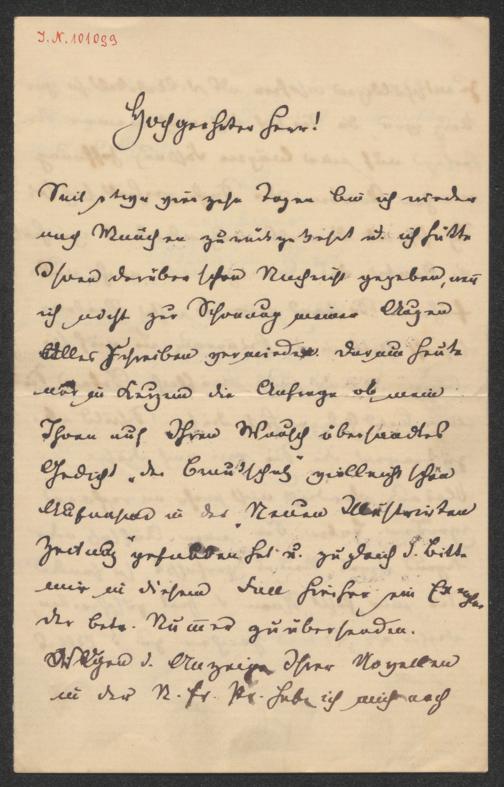 I.N. 101099
Hochgeehrter Herr!
Seit etwa vierzehn Tagen bin ich wieder
nach München zurückgekehrt u. ich hätte
Ihnen darüber schon Nachricht gegeben, wenn
ich nicht zur Schonung meiner Augen
Alles Schreiben vermieden. Darum heute
nur in Kürze die Anfrage ob mein
Ihnen auf Ihren Wunsch übersandtes
Gedicht „der Brautschatz" vielleicht schon
Aufnahme in der „Neuen Illustrirten
Zeitung" gefunden hat u. zugleich d. Bitte
mir in diesem Fall hieher ein Exemplar
der betr. Nummer zu übersenden.
Wegen d. Anzeige Ihrer Novellen
in der N. Fr. Pr. habe ich mich nach